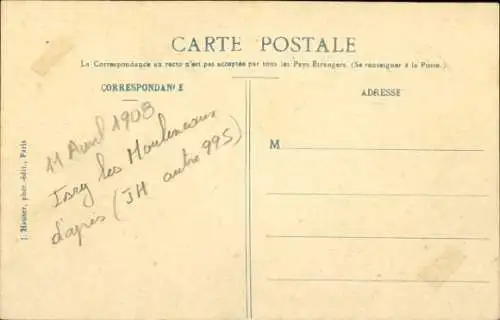 CARTE POSTALE
La Correspondance au recto n'est pas acceptée par tous les Pays Étrangers. (Se renseigner à la Poste.)
CORRESPONDANCE
ADRESSE
M
11 Avril 1908
Issy les Moulineaux
d'après (JH autre 995)
J. Hauser, phot.-édit., Paris